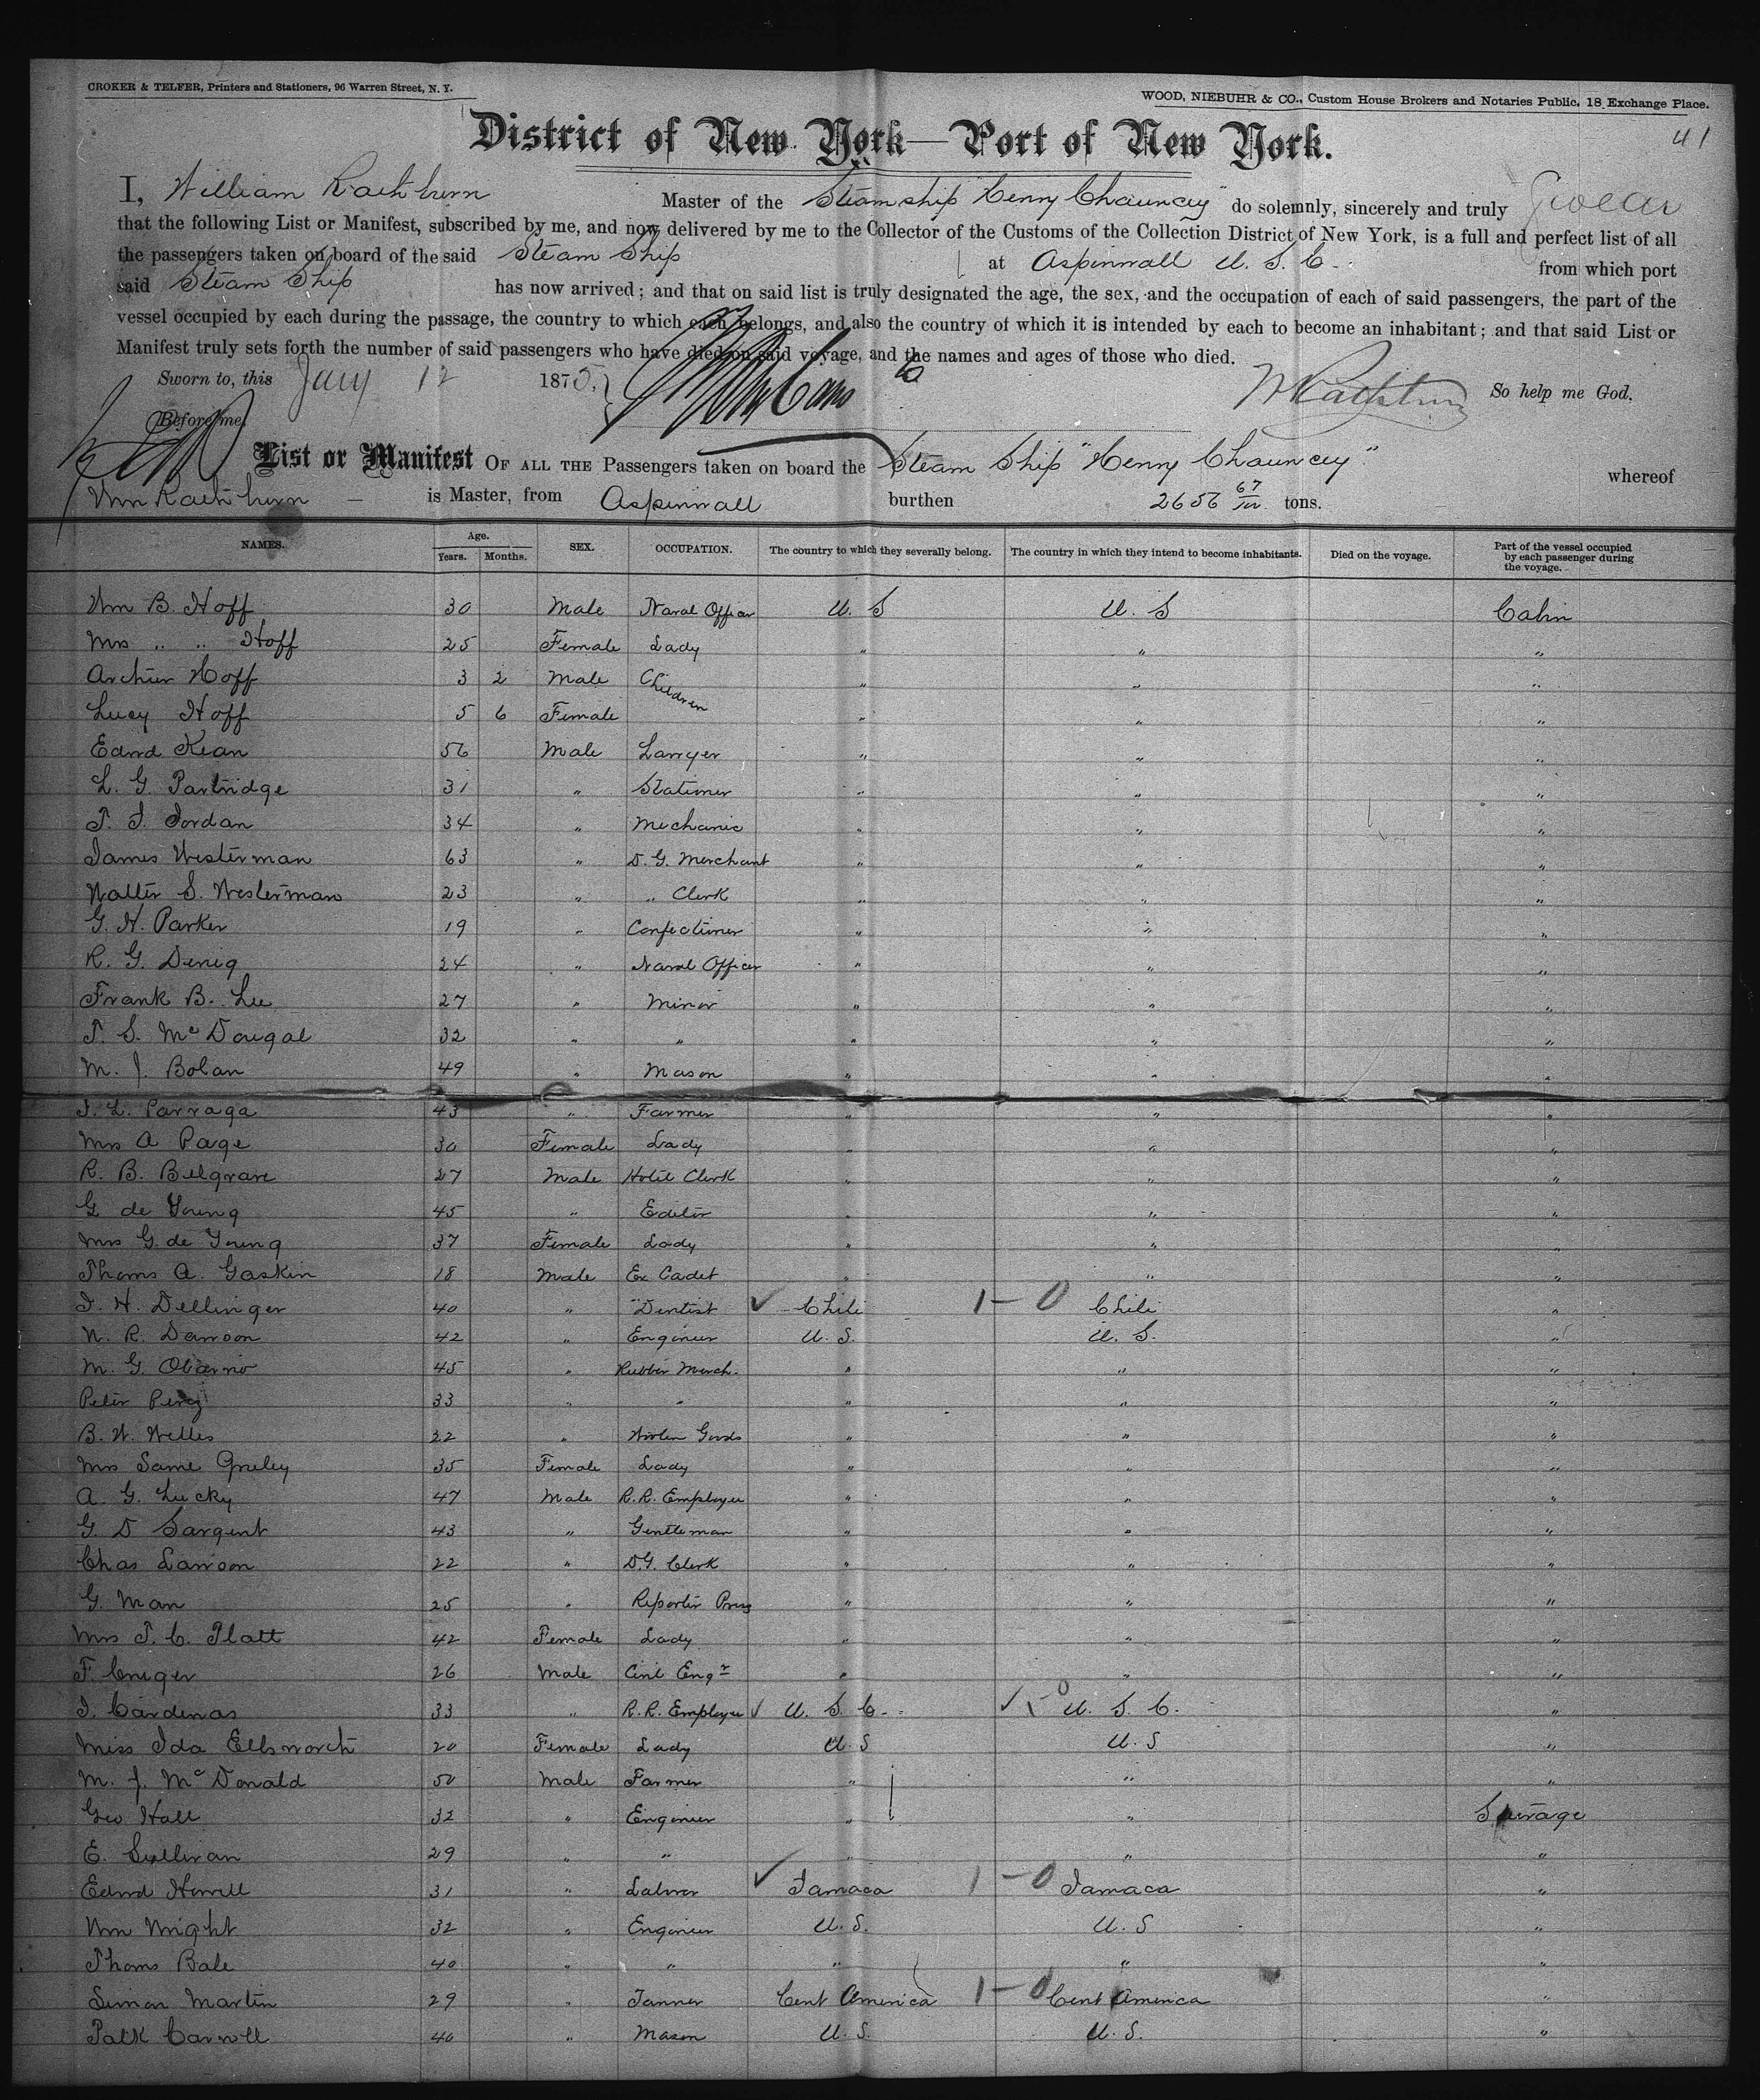 CROKER & TELFER, Printers and Stationers, 96 Warren Street, N. Y.
WOOD, NIEBUHR & CO., Custom House Brokers and Notaries Public, 18 Exchange Place.
41
District of New York—Port of New York.
I, William Rathburn Master of the Steamship "Henry Chauncey" do solemnly, sincerely and truly Swear
that the following List or Manifest, subscribed by me, and now delivered by me to the Collector of the Customs of the Collection District of New York, is a full and perfect list of all
the passengers taken on board of the said Steam Ship at Aspinwall U. S. C. from which port
said Steam Ship has now arrived; and that on said list is truly designated the age, the sex, and the occupation of each of said passengers, the part of the
vessel occupied by each during the passage, the country to which each belongs, and also the country of which it is intended by each to become an inhabitant; and that said List or
Manifest truly sets forth the number of said passengers who have died on said voyage, and the names and ages of those who died.
Sworn to, this Jany 12 1875, W Rathburn So help me God.
Before me,
List or Manifest OF ALL THE Passengers taken on board the Steam Ship "Henry Chauncey" whereof
Wm Rathburn is Master, from Aspinwall burthen 2656 67/100 tons.
NAMES. Age. Years. Months. SEX. OCCUPATION. The country to which they severally belong. The country in which they intend to become inhabitants. Died on the voyage. Part of the vessel occupied by each passenger during the voyage.
Wm B. Hoff 30 Male Naval Officer U. S U. S Cabin
Mrs " " Hoff 25 Female Lady " " "
Archier Hoff 3 2 Male Children " " "
Lucy Hoff 5 6 Female " " "
Edwd Kean 56 Male Lawyer " " "
L. G. Partridge 31 " Stationer " " "
T. J. Jordan 34 " Mechanic " " "
James Westerman 63 " D. G. Merchant " " "
Walter S. Westerman 23 " " Clerk " " "
G. H. Parker 19 " Confectioner " " "
R. G. Denig 24 " Naval Officer " " "
Frank B. Lee 27 " Minor " " "
T. S. McDougal 32 " " " " "
M. J. Bolan 49 " Mason " " "
J. L. Parraga 43 " Farmer " " "
Mrs A Page 30 Female Lady " " "
R. B. Belgrave 27 Male Hotel Clerk " " "
G de Young 45 " Editor " " "
Mrs G. de Young 37 Female Lady " " "
Thoms A. Gaskin 18 Male Ex Cadet " " "
J. H. Dellinger 40 " Dentist ✓ Chili 1-0 Chili "
N. R. Dawson 42 " Engineer U. S. U. S. "
M. G. 45 " Rubber Merch. " " "
Peter Perez 33 " " " " "
B. W. Welles 32 " Woolen Goods " " "
Mrs Same Greley 35 Female Lady " " "
A. G. Lucky 47 Male R. R. Employee " " "
G. D Sargent 43 " Gentleman " " "
Chas Lawson 22 " D.G. Clerk " " "
G. Man 25 " Reporter Press " " "
Mrs T. C. Platt 42 Female Lady " " "
F. Cruger 26 Male Civil Engr " " "
J. Cardenas 33 " R. R. Employee ✓ U. S. C. ✓ 1-0 U. S. C. "
Miss Ida Ellsworth 20 Female Lady U. S U. S "
M. J. McDonald 50 Male Farmer " " "
Geo Hall 32 " Engineer " " Steerage
E. Sullivan 29 " " " " "
Edwd Howell 31 " Labour ✓ Jamaca 1-0 Jamaca "
Wm Wright 32 " Engineer U. S. U. S "
Thoms Bale 40 " " " " "
Simon Martin 29 " Tanner Cent America 1-0 Cent America "
Patk Carroll 40 " Mason U. S. U. S. "